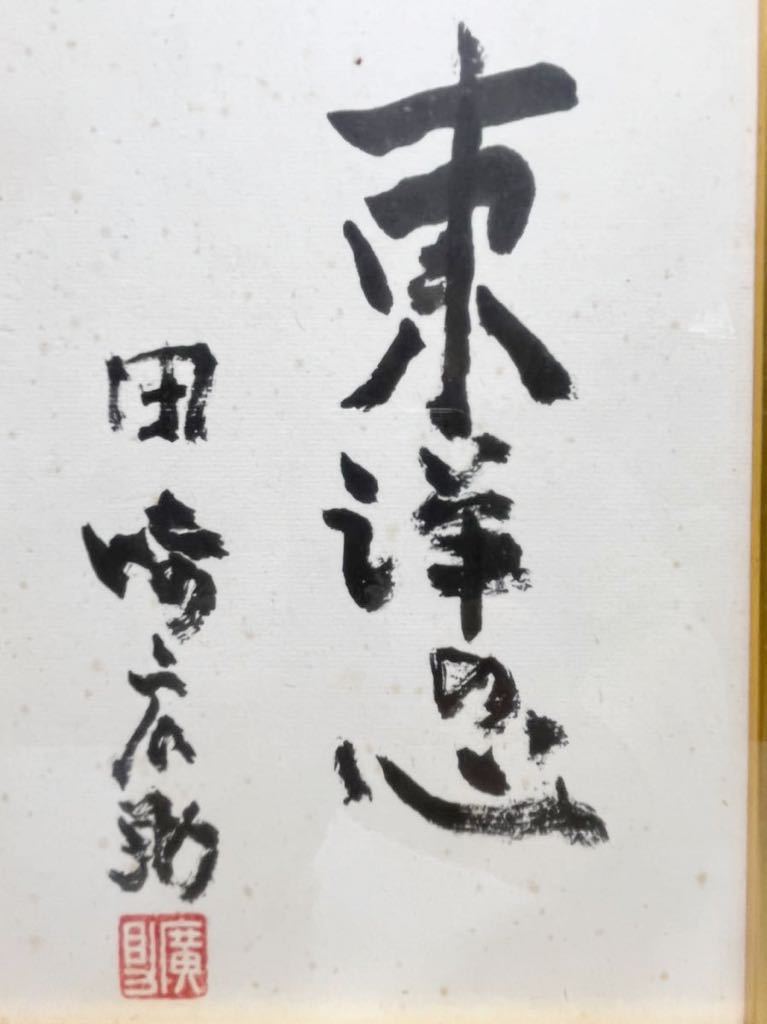 東洋思
田崎広助
廣助